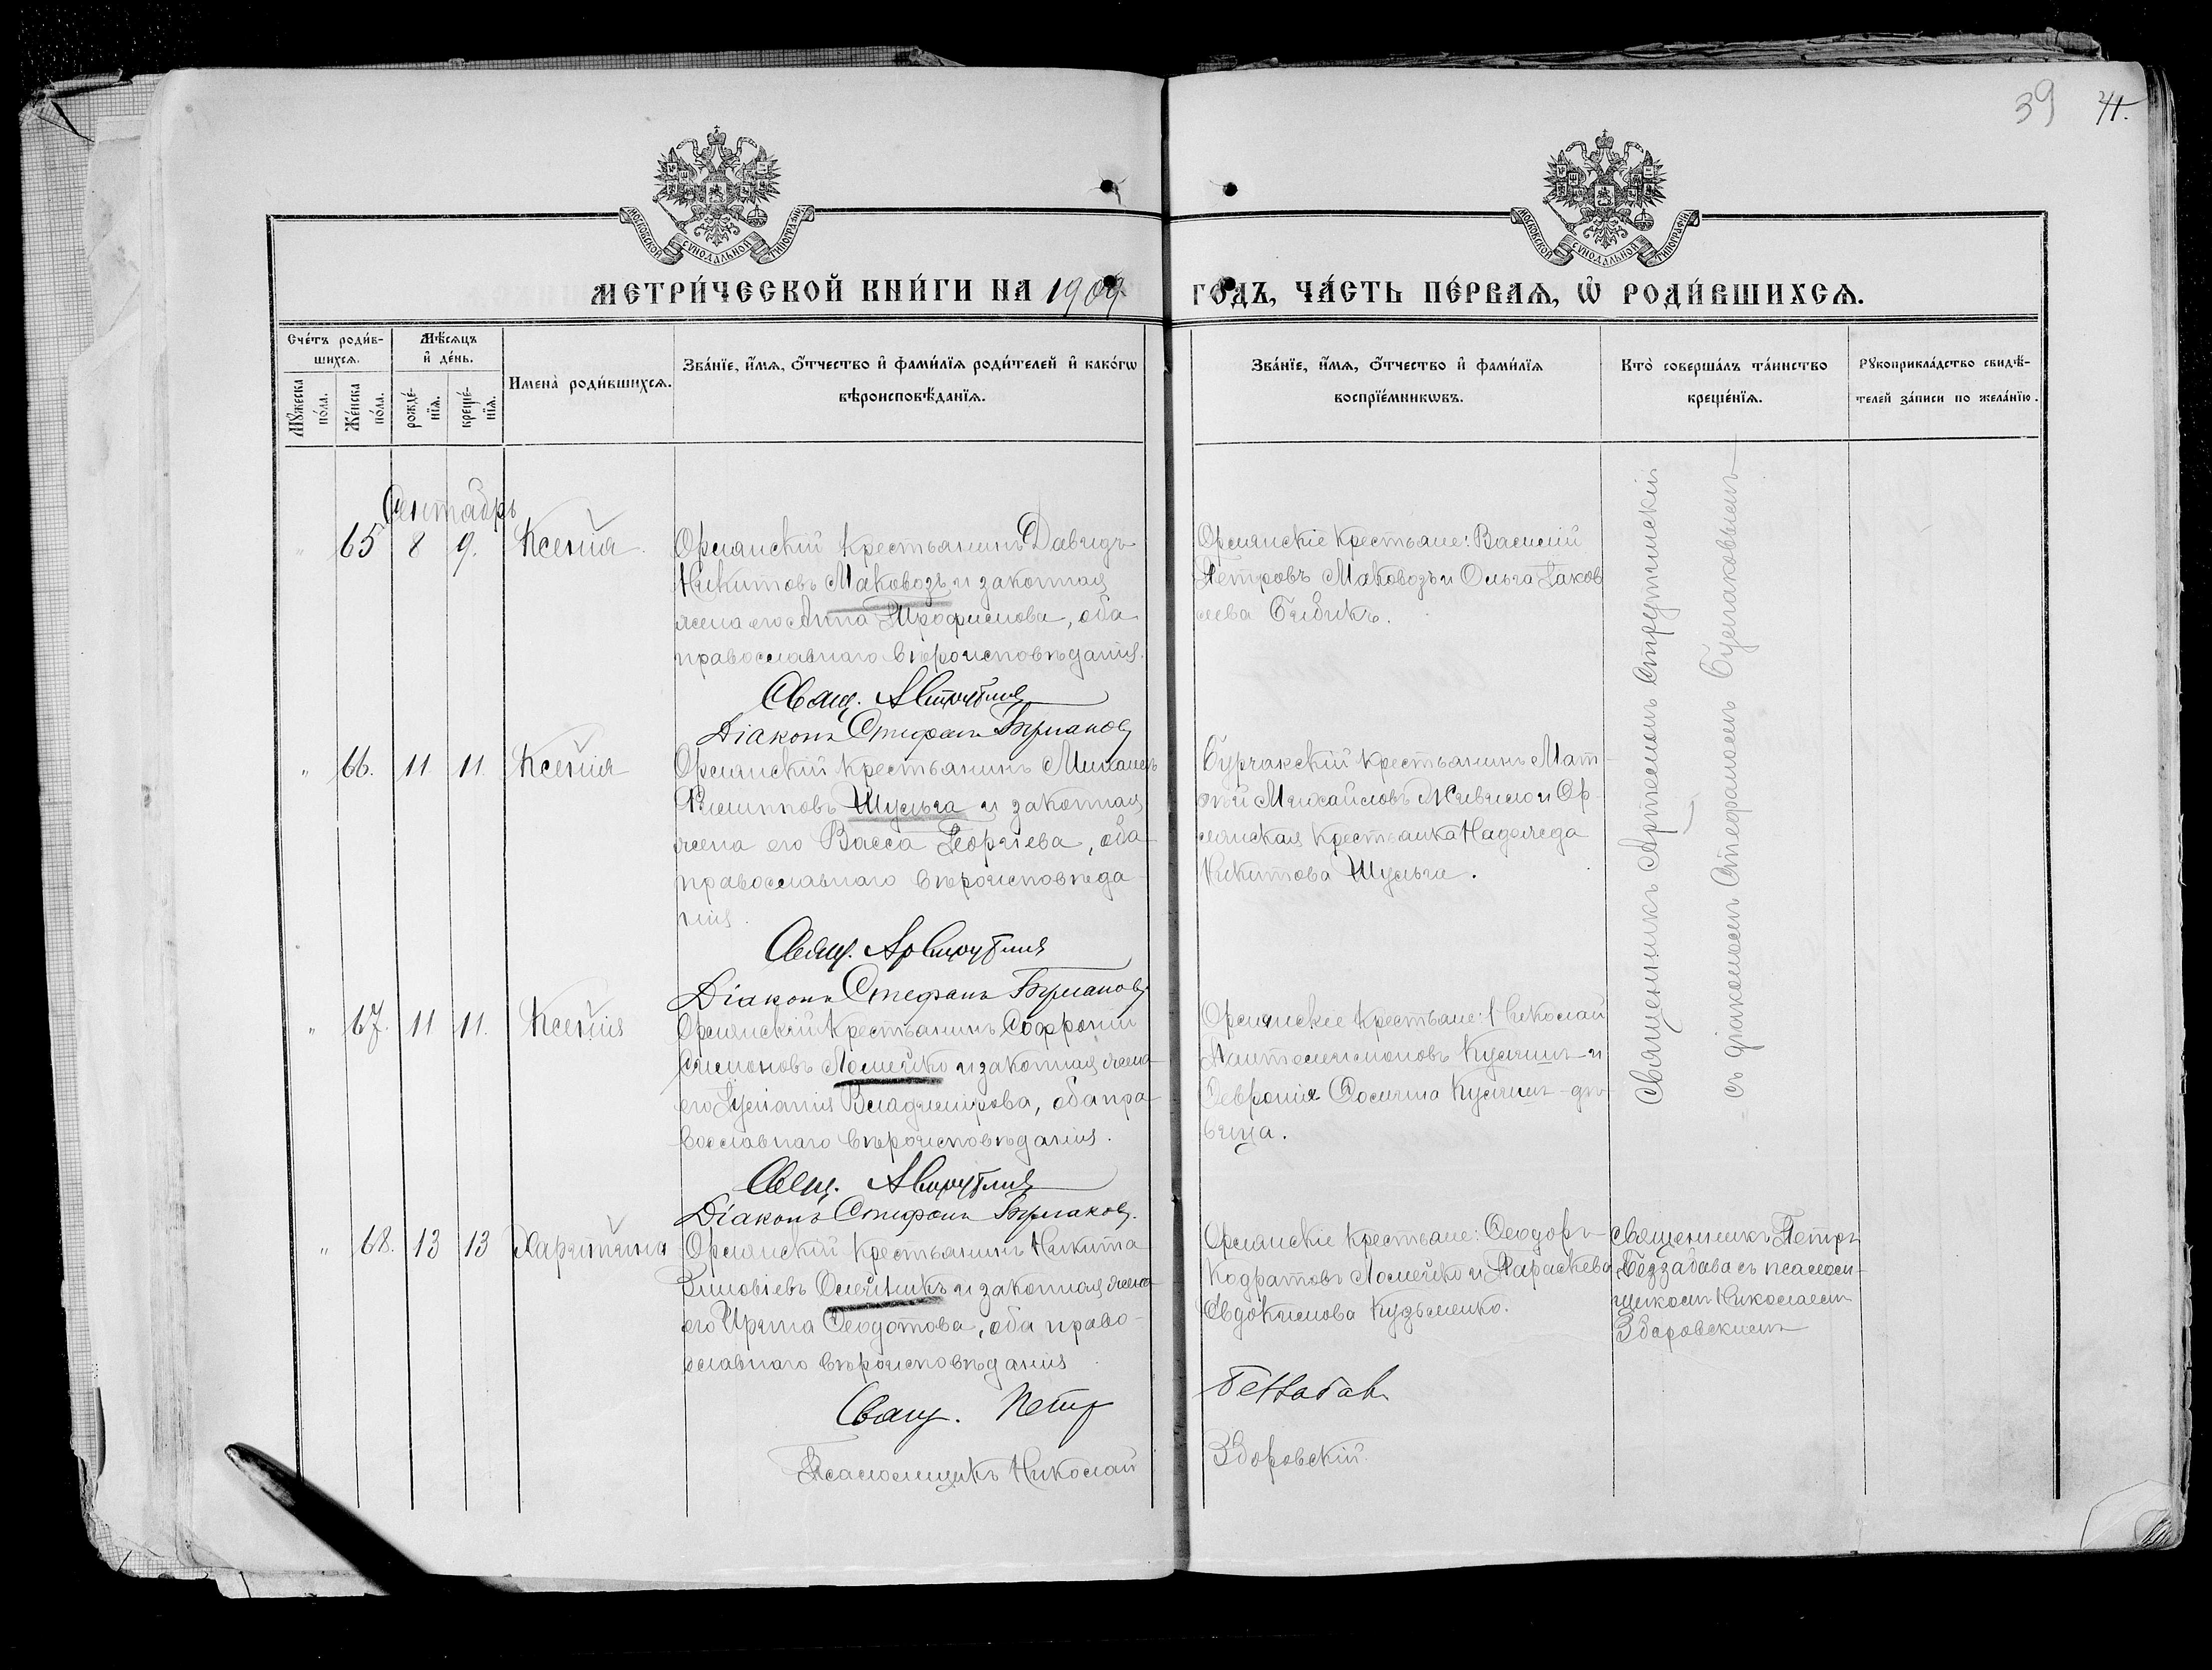 39 41.
МОСКОВСКОЙ СѴНОДАЛЬНОЙ ТИПОГРАФІИ
МОСКОВСКОЙ СѴНОДАЛЬНОЙ ТИПОГРАФІИ
МЕТРИ́ЧЕСКОЙ КНИ́ГИ НА 1909 ГО́ДЪ, ЧА́СТЬ ПЕ́РВАѦ, Ѡ҆ РОДИ́ВШИХСѦ.
Сче́тъ роди́в-
шихсѧ.
Мꙋ́жеска
по́ла.
Же́нска
по́ла.
Мѣ́сѧцъ
и҆ де́нь.
рожде́-
нїѧ.
креще́-
нїѧ.
Имена̀ роди́вшихсѧ.
Зва́нїе, и҆́мѧ, ѻ҆́тчество и҆ фами́лїѧ роди́телей и҆ како́гѡ
вѣроисповѣ́данїѧ.
Зва́нїе, и҆́мѧ, ѻ҆́тчество и҆ фами́лїѧ
воспрїе́мникѡвъ.
Кто̀ соверша́лъ та́инство
креще́нїѧ.
Рꙋкоприкла́дство свидѣ́-
телей за́писи по жела́нїю.
Сентябрь
" 65 8 9. Ксенія
Орлянскій крестьянинъ Давидъ
Никитовъ Маковозъ и законная
жена его Анна Трофимова, оба
православнаго вѣроисповѣданія.
Свящ. А Струтинскій
Діаконъ Стефанъ Булгаковъ
Орлянскіе крестьяне: Василій
Петровъ Маковозъ и Ольга Іаков
лева Бибикъ.
Священникъ Артемонъ Струтинскій
съ діакономъ Стефаномъ Булгаковымъ
" 66. 11 11. Ксенія
Орлянскій крестьянинъ Михаилъ
Филипповъ Шульга и законная
жена его Васса Георгіева, оба
православнаго вѣроисповѣда
нія.
Свящ. Ар Струтинскій
Діаконъ Стефанъ Булгаковъ
Бурчакскій крестьянинъ Мат-
ѳій Михайловъ Живило и Ор-
лянская крестьянка Надежда
Никитова Шульга.
" 67. 11 11. Ксенія
Орлянскій крестьянинъ Софроній
Симоновъ Ломейко и законная жена
его Іуліанія Владимірова, оба пра-
вославнаго вѣроисповѣданія.
Свящ. А Струтинскій
Діаконъ Стефанъ Булгаковъ.
Орлянскіе крестьяне: Николай
Пантелеимоновъ и
Февронія дѣ-
вица.
" 68. 13 13 Харитина
Орлянскій крестьянинъ Никита
Зиновіевъ Олейникъ и законная жена
его Ирина Ѳеодотова, оба право-
славнаго вѣроисповѣданія
Свящ. Петр Беззабав
Псаломщикъ Николай Зборовскій.
Орлянскіе крестьяне: Ѳеодоръ
Кодратовъ Ломейко и Параскева
Евдокимова Кузьменко.
Священникъ Петръ
Беззабава съ псалом-
щикомъ Николаемъ
Зборовскимъ